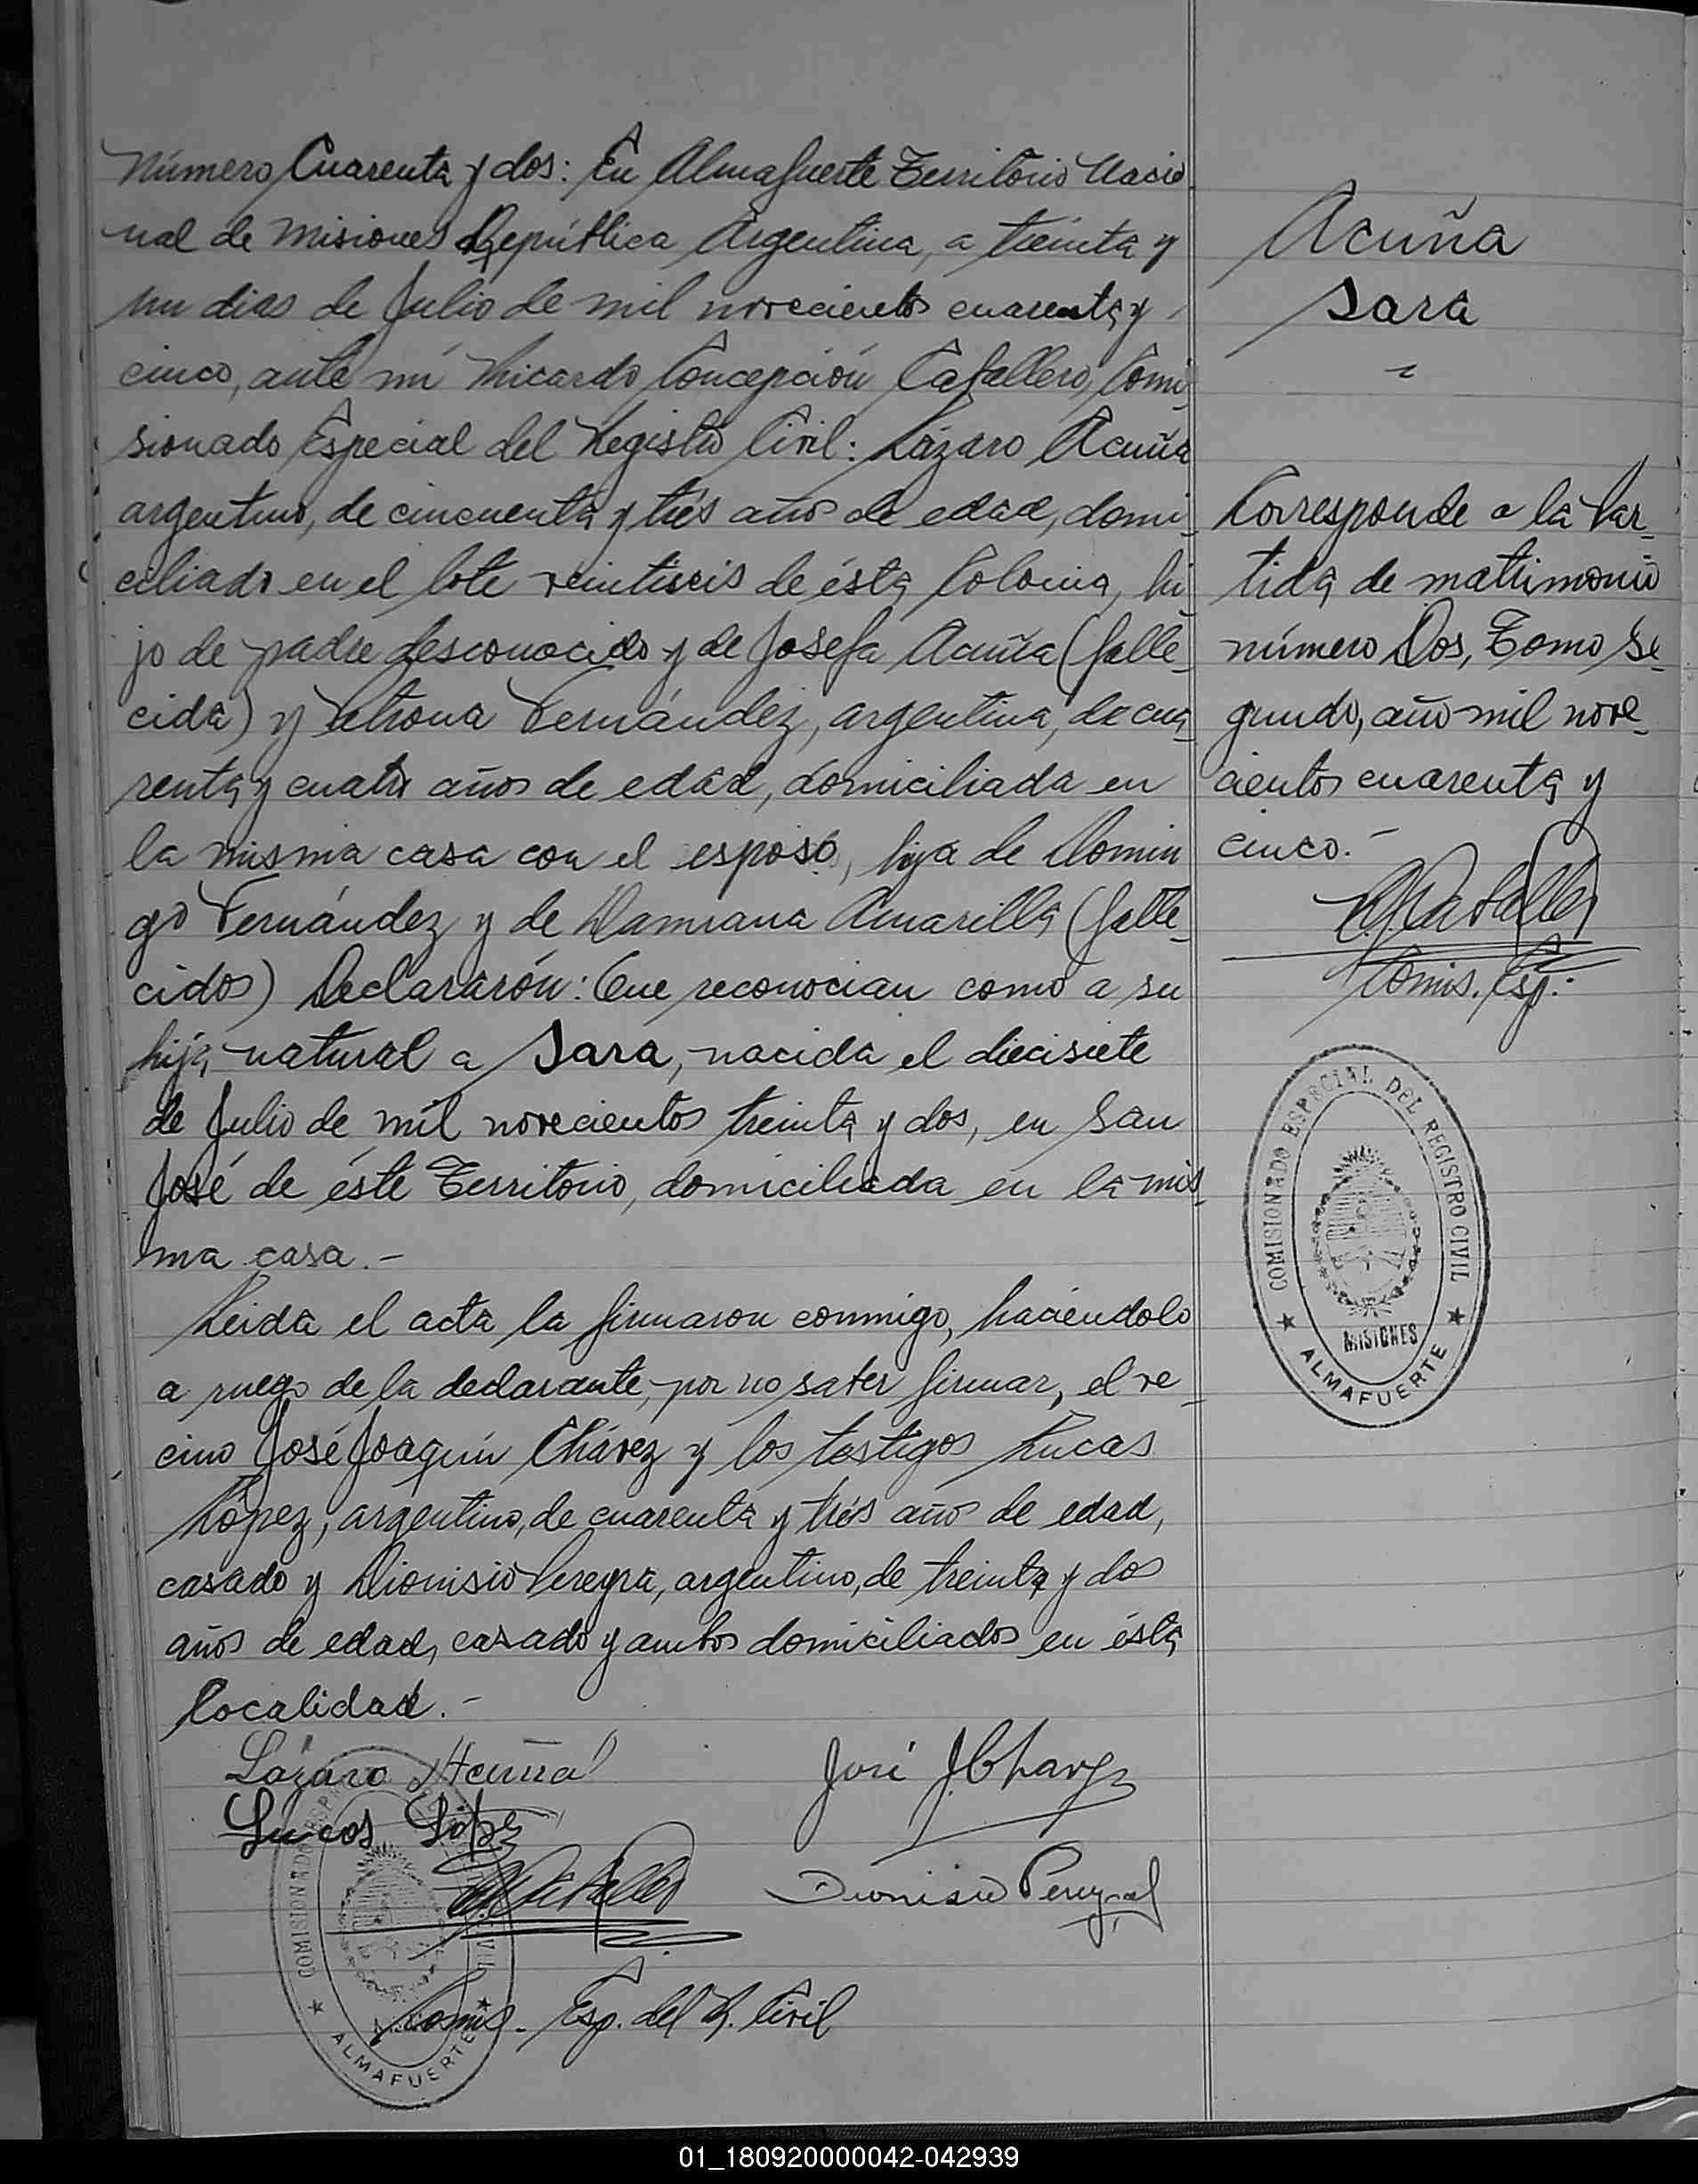 Número Cuarenta y dos: En Almafuerte Territorio Nacio
nal de Misiones República Argentina, a treinta y
un dias de Julio de mil novecientos cuarenta y
cinco, ante mí Ricardo Concepción Caballero, Comi
sionado Especial del Registro Civil: Lázaro Acuña
argentino, de cincuenta y trés años de edad, domi-
ciliado en el lote veintiseis de ésta Colonia, hi
jo de padre desconocido y de Josefa Acuña (falle-
cida) y Petrona Fernández, argentina, de cua-
renta y cuatro años de edad, domiciliada en
la misma casa con el esposo, hija de Domin
go Fernández y de Damiana Amarilla (falle-
cidos) Declararón: Que reconocian como a su
hija natural a Sara, nacida el diecisiete
de Julio de mil novecientos treinta y dos, en San
José de éste Territorio, domiciliada en la mis-
ma casa.-
Leida el acta la firmaron conmigo, haciéndolo
a ruego de la declarante, por no saber firmar, el ve-
cino José Joaquín Chávez y los testigos Lucas
López, argentino, de cuarenta y trés años de edad,
casado y Dionisio Pereyra, argentino, de treinta y dos
años de edad, casado y ambos domiciliados en ésta
localidad.-
Lázaro Acuña
José J. Chavez
Lucos López
R. Caballero
Dionisio Pereyra
Comis. Esp. del R. Civil
COMISIONADO ESPECIAL DEL REGISTRO CIVIL
ALMAFUERTE
Acuña
Sara
Corresponde a la Par-
tida de matrimonio
número Dos, Tomo Se-
gundo, año mil nove-
cientos cuarenta y
cinco.-
R. Caballero
Comis. Esp.:
COMISIONADO ESPECIAL DEL REGISTRO CIVIL
MISIONES
ALMAFUERTE
01_180920000042-042939